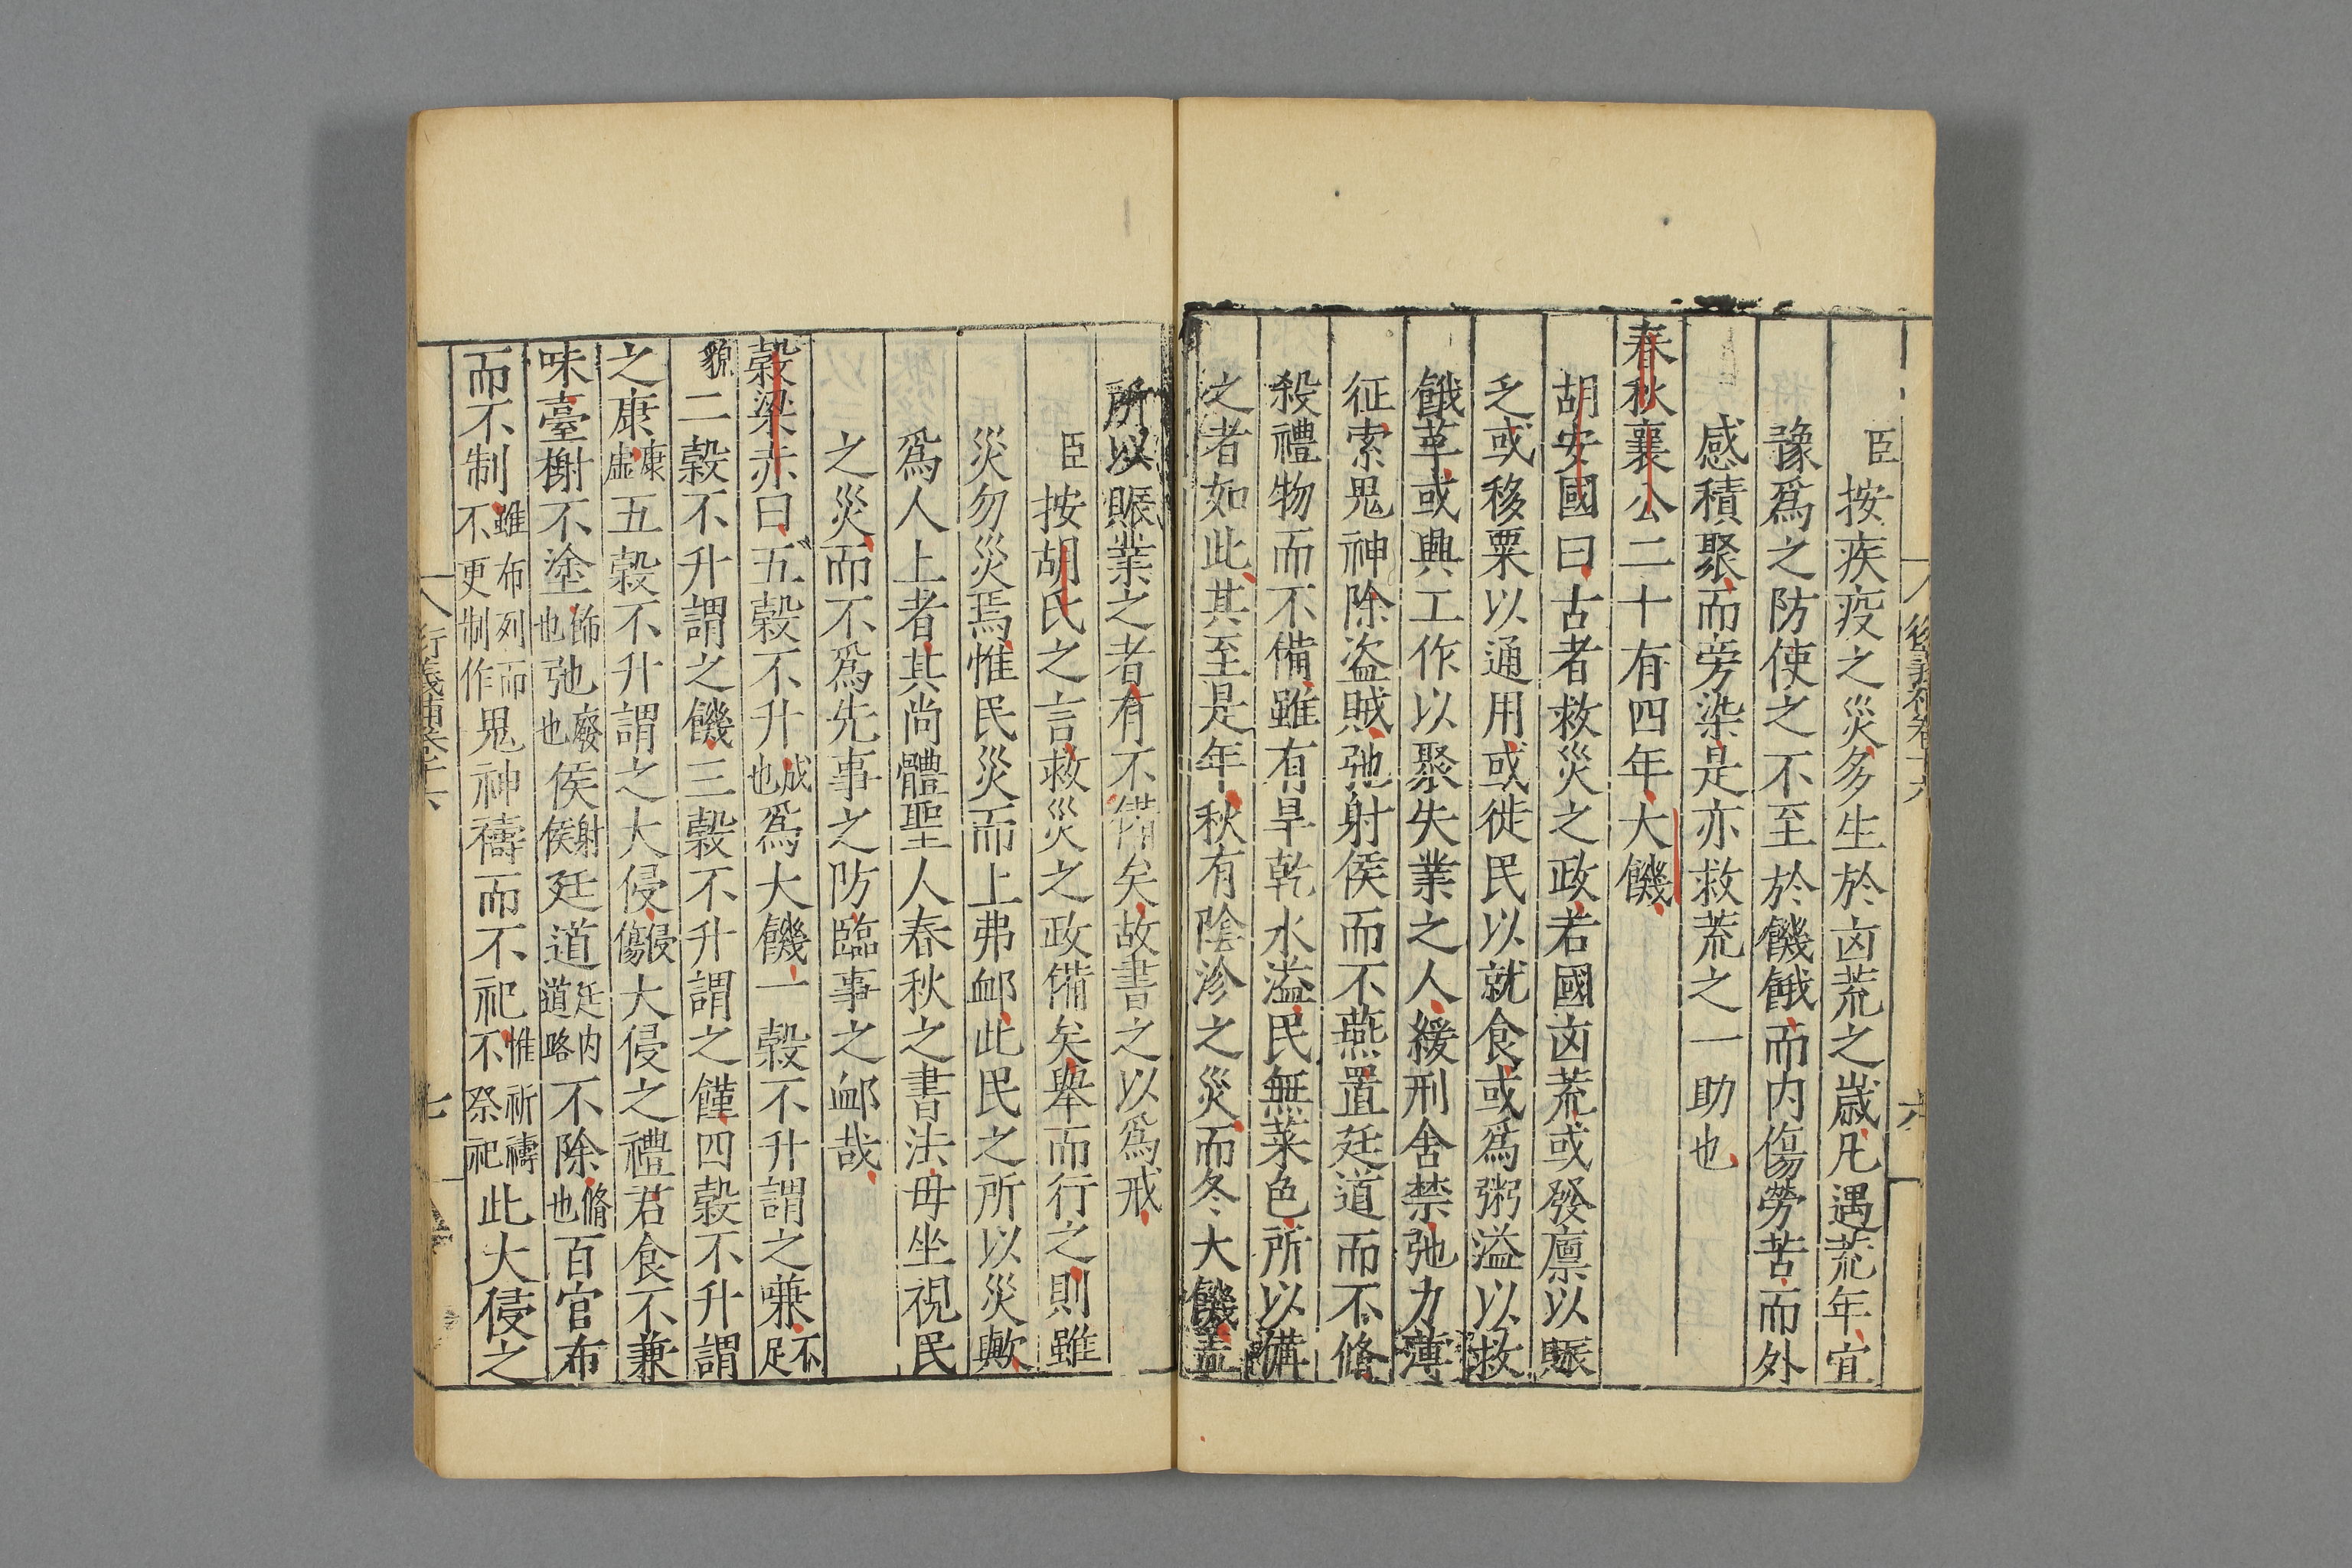 臣按疾疫之災多生於凶荒之歲凡遇荒年宜
豫爲之防使之不至於饑餓而内傷勞苦而外
感積聚而旁染是亦救荒之一助也
春秋襄公二十有四年大饑
胡安國曰古者救災之政若國凶荒或發廩以賑
乏或移粟以通用或徙民以就食或爲粥溢以救
餓莩或興工作以聚失業之人緩刑舍禁弛力薄
征索鬼神除盜賊弛射侯而不燕置廷道而不脩
殺禮物而不備雖有旱乾水溢民無菜色所以備
之者如此其至是年秋有陰沴之災而冬大饑蓋
所以賑業之者有不備矣故書之以爲戒
臣按胡氏之言救災之政備矣舉而行之則雖
災勿災焉惟民災而上弗䘏此民之所以災歟
爲人上者其尚體聖人春秋之書法毋坐視民
之災而不爲先事之防臨事之䘏哉
穀梁赤曰五穀不升成也爲大饑一穀不升謂之嗛不足
貌二穀不升謂之饑三穀不升謂之饉四穀不升謂
之康康虛五穀不升謂之大侵侵傷大侵之禮君食不兼
味臺榭不塗飾也弛廢也侯射侯廷道廷内道路不除脩也百官布
而不制雖布列而不更制作鬼神禱而不祀惟祈禱不祭祀此大侵之
衍義補卷十六
七
六